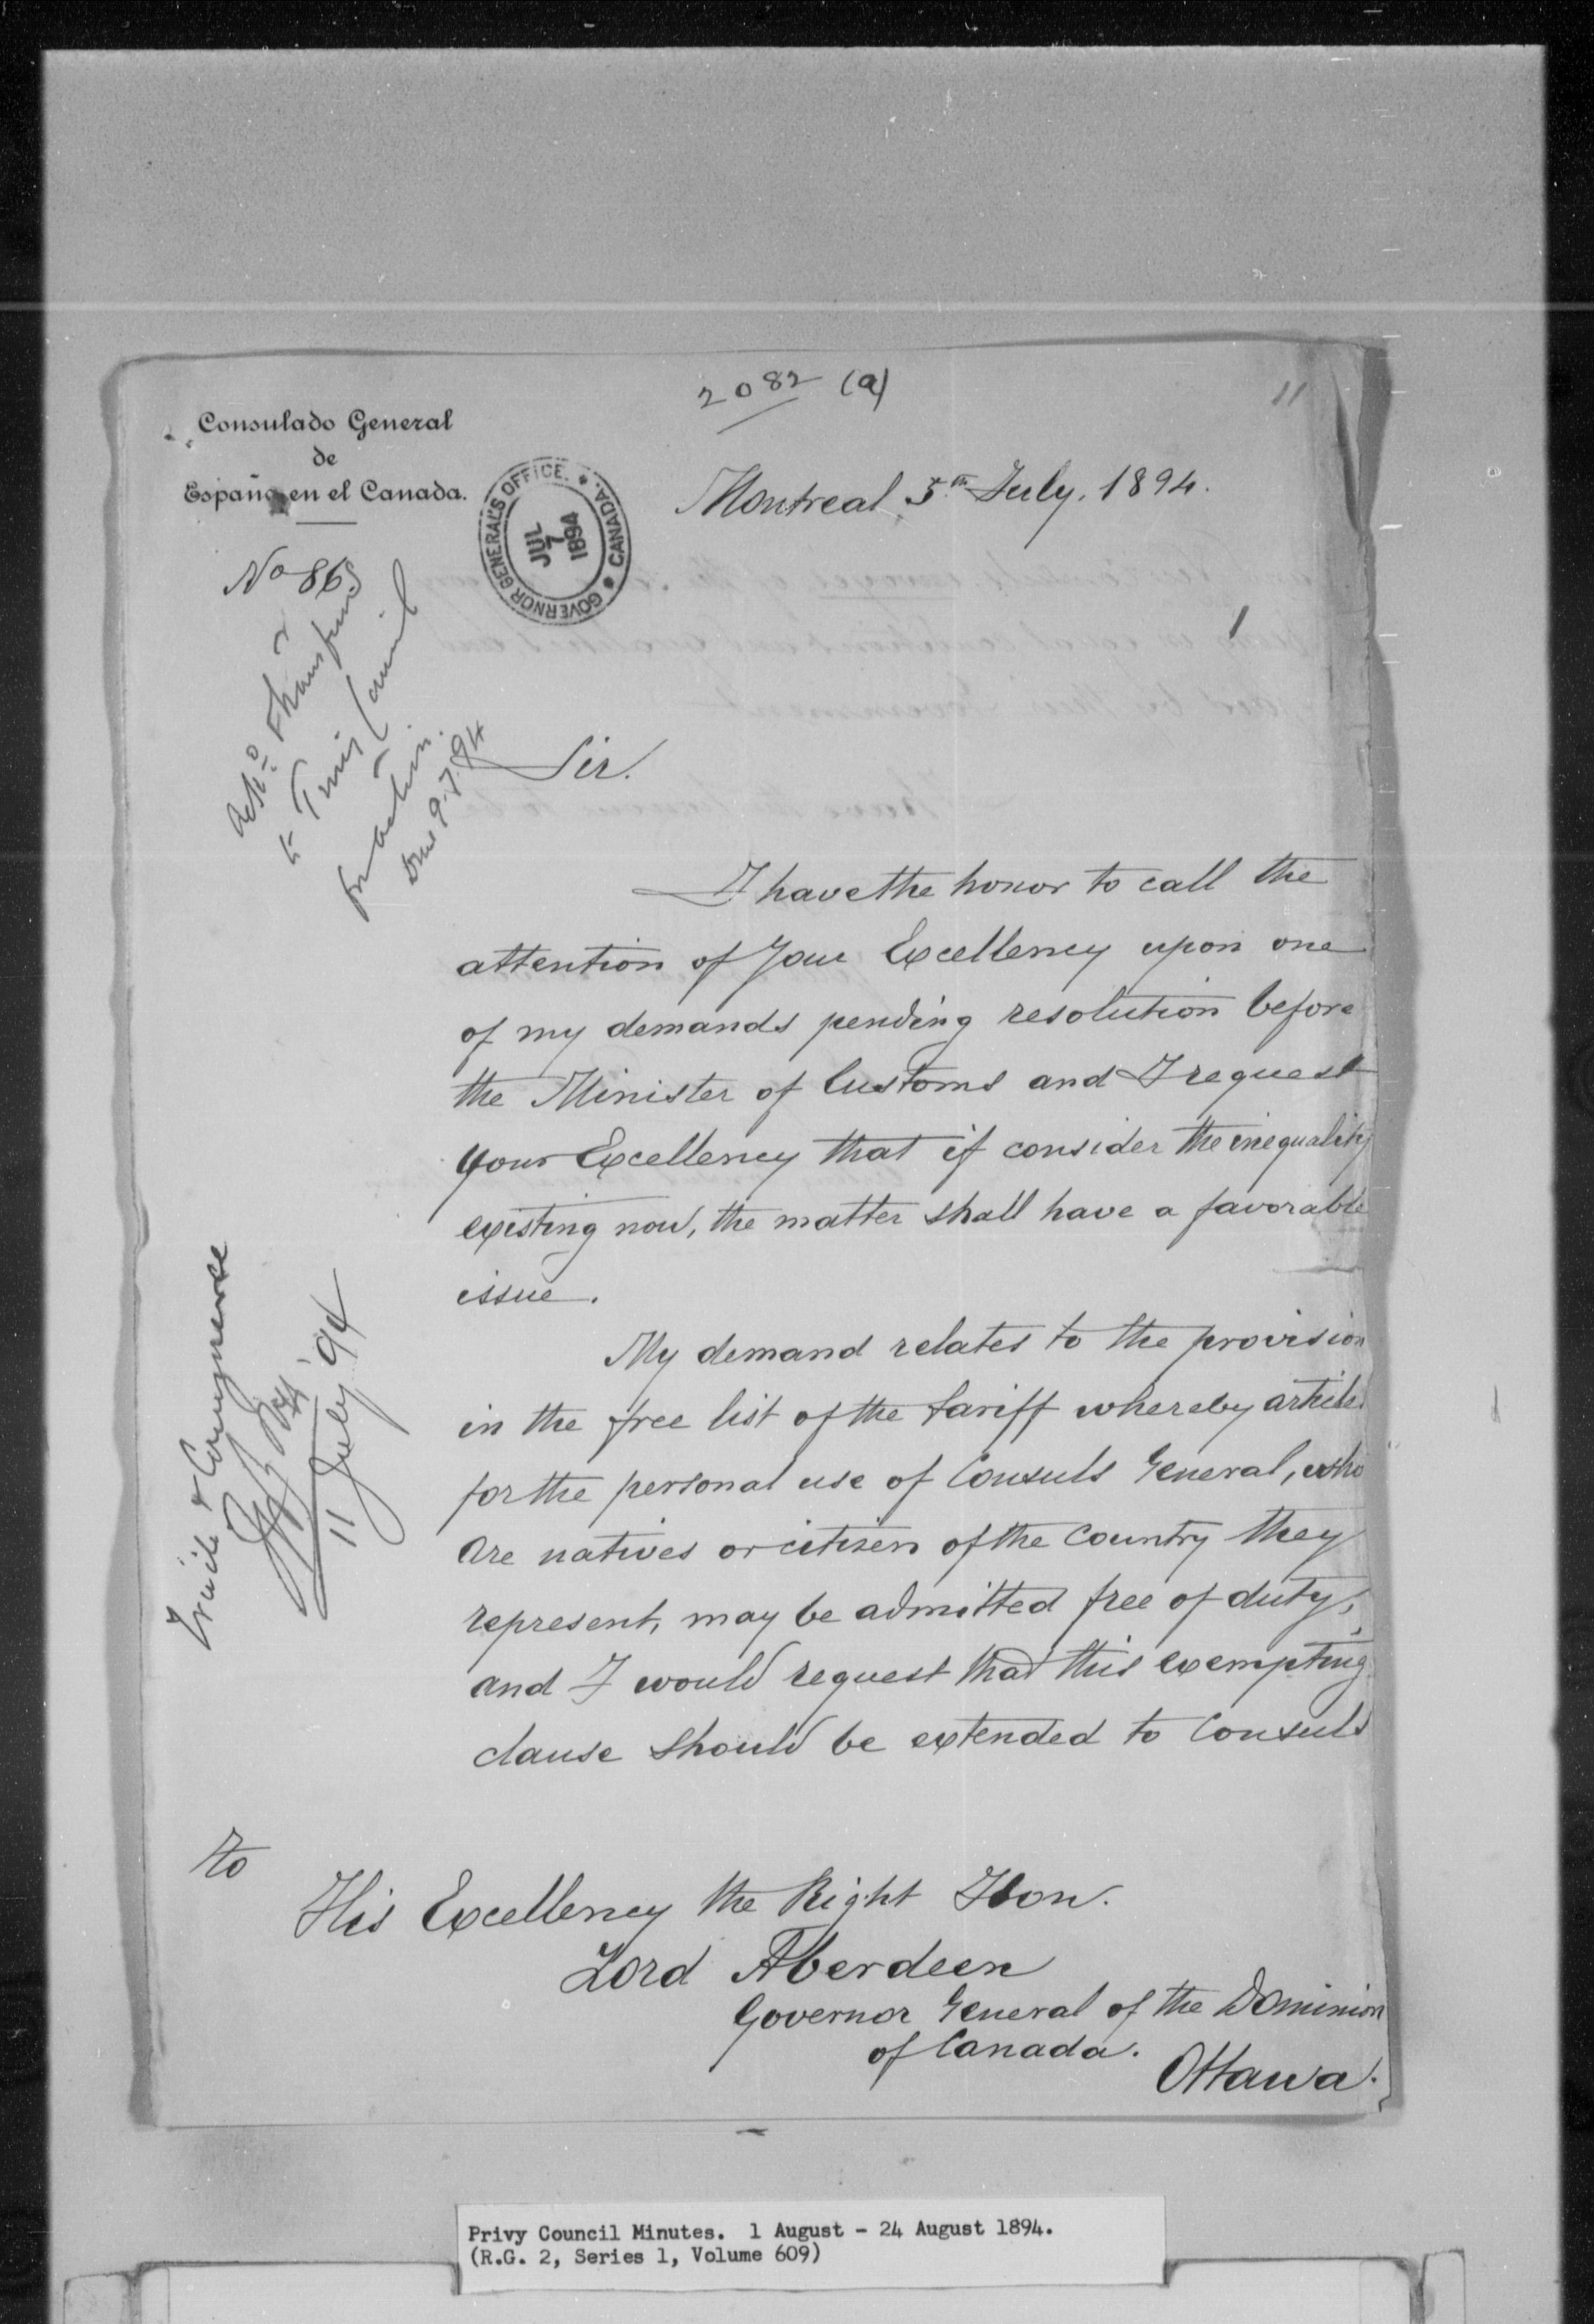 2082 (a)
11
Consulado General
de
España en el Canada.
GOVERNOR GENERAL'S OFFICE. * CANADA. *
JUL
7
1894
Montreal 5th July. 1894.
No 863
Privy Council
for action.
9.7.94
Sir.
I have the honor to call the
attention of Your Excellency upon one
of my demands pending resolution before
the Minister of Customs and I request
your Excellency that if consider the inequality
existing now, the matter shall have a favorable
issue.
My demand relates to the provision
in the free list of the tariff whereby articles
for the personal use of Consuls General, who
are natives or citizen of the Country they
represent, may be admitted free of duty,
and I would request that this exempting
clause should be extended to Consuls
Trade & Commerce
11 July '94
To
His Excellency the Right Hon.
Lord Aberdeen
Governor General of the Dominion
of Canada.
Ottawa.
Privy Council Minutes. 1 August - 24 August 1894.
(R.G. 2, Series 1, Volume 609)